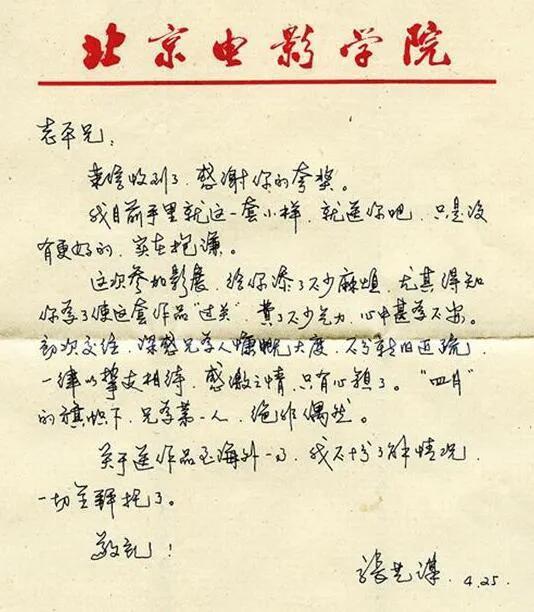 北京电影学院
志平兄:
来信收到了,感谢你的夸奖。
我目前手里就这一套小样,就送你吧,只是没
有更好的,实在抱谦。
这次参加影展,给你添了不少麻烦,尤其得知
你为了使这套作品“过关”,费了不少气力,心中甚为不安。
初次交往,深感兄为人慷慨大度,不分新旧近疏,
一律以挚友相待,感激之情,只有心领了。“四月”
的旗帜下,兄为第一人,绝非偶然。
关于送作品至海外一事,我不十分了解情况,
一切全拜托了。
敬礼!
张艺谋 4.25.